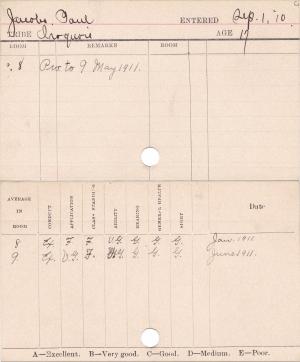 Jacobs, Paul ENTERED Sep. 1, '10
TRIBE Iroquois AGE 17
ROOM REMARKS ROOM
8 Pro. to 9 May 1911.
AVERAGE IN ROOM CONDUCT APPLICATION CLASS STANDING ABILITY HEARING GENERAL HEALTH SIGHT Date
8 Ex. F. F. V.G. G. G. G. Jan. 1911
9 Ex. V.G. F. G. G. G. June 1911.
A—Excellent. B—Very good. C—Good. D—Medium. E—Poor.